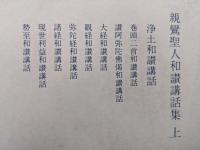 親鸞聖人和讃講話集 上
浄土和讃講話
巻頭二首和讃講話
讃阿弥陀佛偈和讃講話
大経和讃講話
観経和讃講話
弥陀経和讃講話
諸経和讃講話
現世利益和讃講話
勢至和讃講話